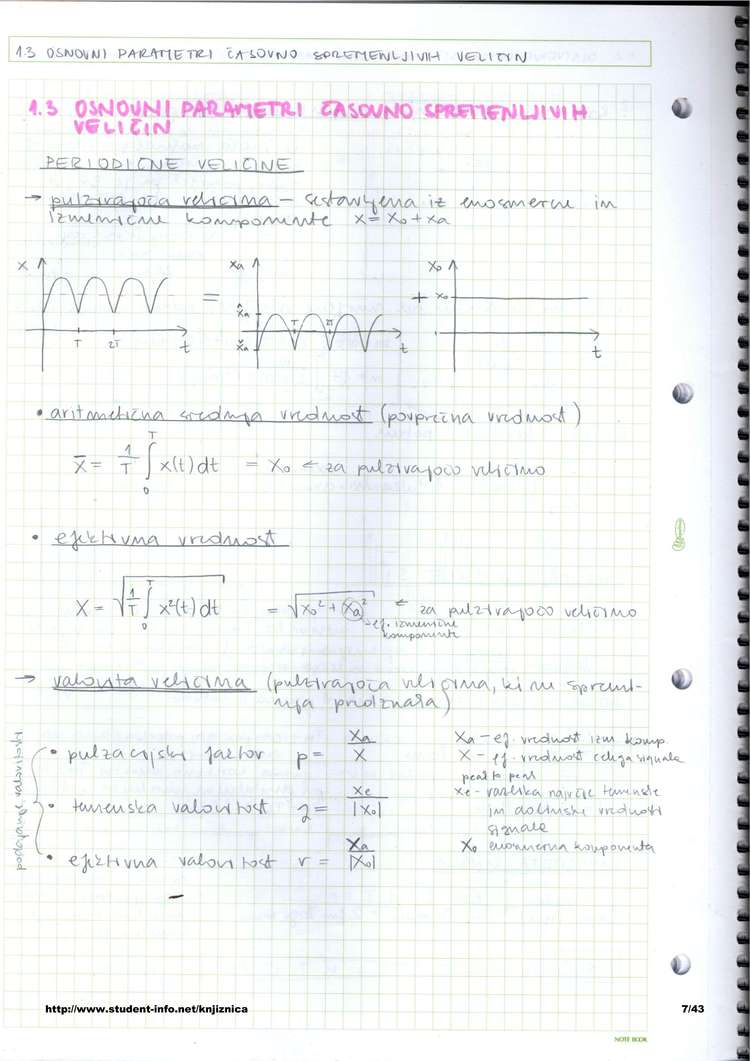 1.3 OSNOVNI PARAMETRI ČASOVNO SPREMENLJIVIH VELIČIN
1.3 OSNOVNI PARAMETRI ČASOVNO SPREMENLJIVIH
VELIČIN
PERIODIČNE VELIČINE
→ pulzirajoča veličina – sestavljena iz enosmerne in
izmenične komponente x = x₀ + xₐ
x T 2T t = xₐ x̂ₐ x̌ₐ T 2T t + x₀ x₀ t
• aritmetična srednja vrednost (povprečna vrednost)
x̄ = 1/T ∫₀ᵀ x(t) dt = x₀ ← za pulzirajočo veličino
• efektivna vrednost
X = √(1/T ∫₀ᵀ x²(t) dt) = √(x₀² + Xₐ²) ← za pulzirajočo veličino
ef. izmenične
komponente
→ valovita veličina (pulzirajoča veličina, ki ne spremi-
nja predznaka)
• pulzacijski faktor p = Xₐ / X
• temenska valovitost = xₑ / |x₀|
• efektivna valovitost r = Xₐ / |X₀|
Xₐ – ef. vrednost izm komp.
X – ef. vrednost celega signala
peak to peak
xₑ – razlika največje temenske
in dolinske vrednosti
signala
X₀ enosmerna komponenta
http://www.student-info.net/knjiznica
7/43
NOTE BOOK